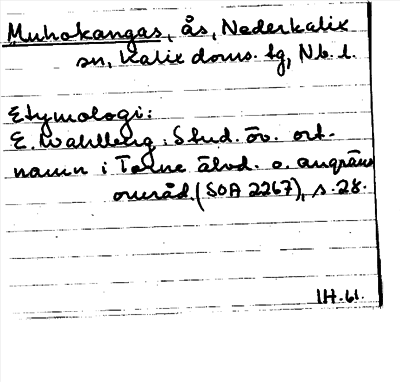 Muhokangas, ås, Nederkalix
sn, Kalix doms. tg, Nb. l.
Etymologi:
E. Wahlberg: Stud. öv. ort-
namn i Torne älvd. o. angräns
område. (SOA 2267), s. 28.
IH. 61.